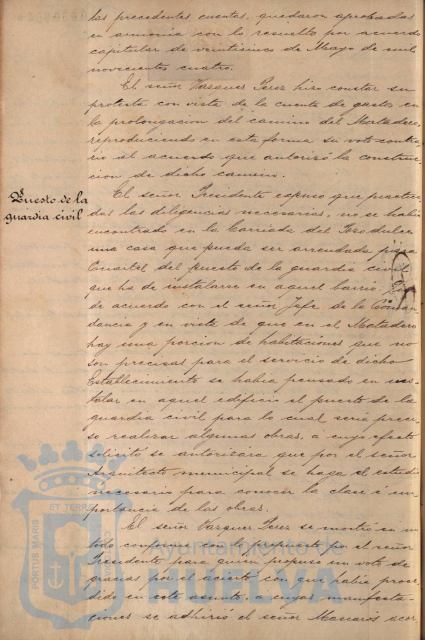 las precedentes cuentas, quedaron aprobadas
en armonia con lo resuelto por acuerdo
capitular de veinticinco de Mayo de mil
novecientos cuatro.
El señor Vazquez Perez hizo constar su
protesta con vista de la cuenta de gastos en
la prolongacion del camino del Matadero,
reproduciendo en esta forma su voto contra
rio al acuerdo que autorizó la construc
cion de dicho camino.
Puesto de la
guardia civil
El señor Presidente expuso que practica
das las diligencias necesarias, no se habia
encontrado en la barriada del
una casa que pueda ser arrendada para
Cuartel del puesto de la guardia civil
que ha de instalarse en aquel barrio
de acuerdo con el señor Jefe de la Coman
dancia y en vista de que en el Matadero
hay una porcion de habitaciones que no
son precisas para el servicio de dicho
Establecimiento se habia pensado en ins
talar en aquel edificio el puesto de la
guardia civil para lo cual seria preci
so realizar algunas obras, a cuyo efecto
solicitó se autorizara que por el señor
Arquitecto municipal se haga el estudio
necesario para conocer la clase é im
portancia de las obras.
El señor Vazquez Perez se mostró en un
todo conforme con lo propuesto por el señor
Presidente para quien propuso un voto de
gracias por el acierto con que habia proce
dido en este asunto, a cuyas manifesta
ciones se adhirió el señor
PORTUS MARIS
ET TERRE
Ayuntamiento de
HUELVA